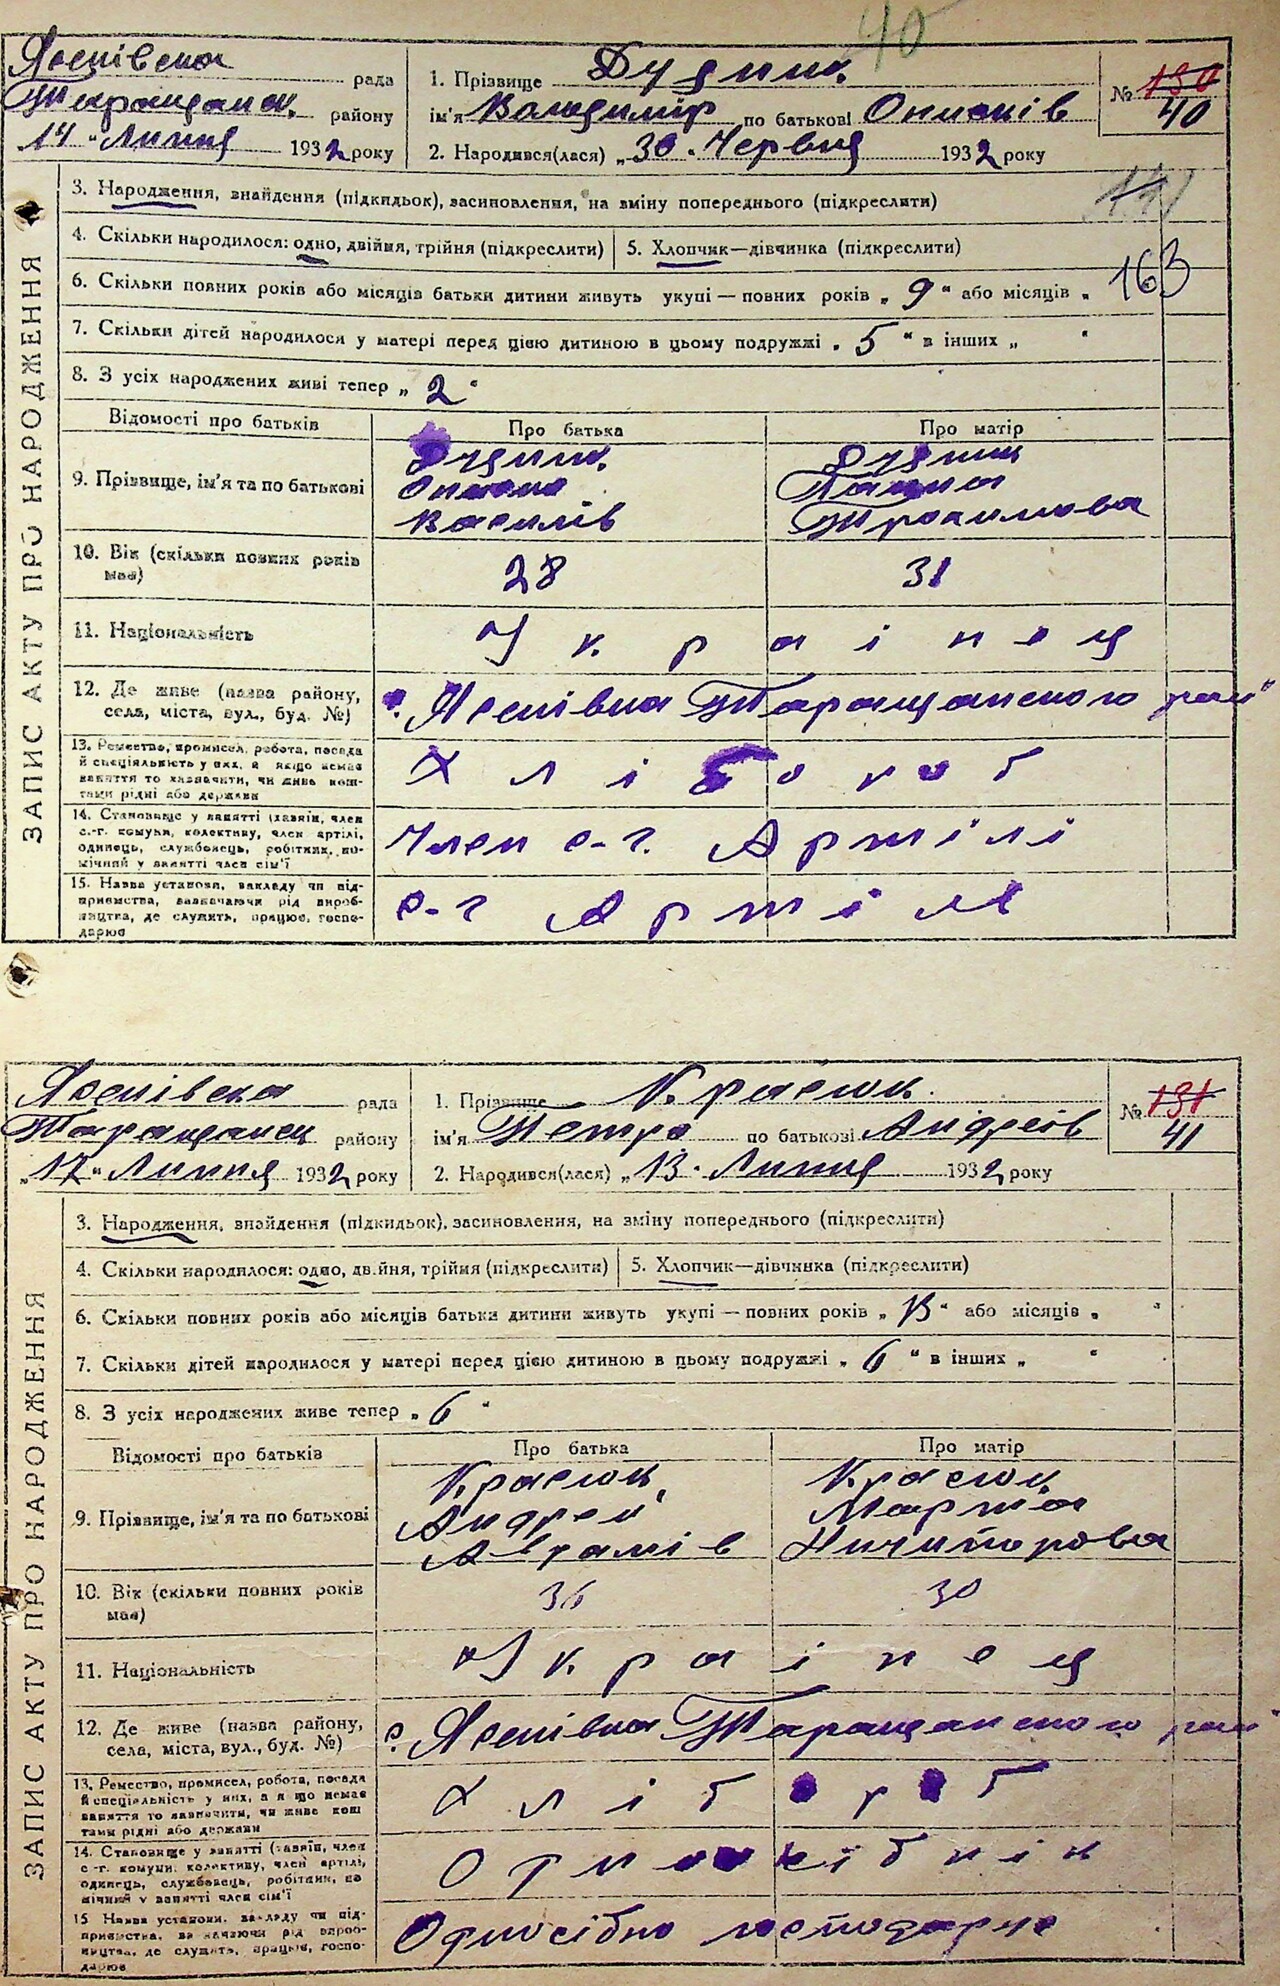 40
Яснівська рада
Таращанськ. району
14 " Липня 1932 року
1. Прізвище Дудник
ім'я Володимір по батькові Онисків
2. Народився(лася) „ 30 " Червня 1932 року
№ 130
40
ЗАПИС АКТУ ПРО НАРОДЖЕННЯ
3. Народження, знайдення (підкидьок), засиновлення, на зміну попереднього (підкреслити)
4. Скільки народилося: одно, двійня, трійня (підкреслити) 5. Хлопчик—дівчинка (підкреслити)
163
6. Скільки повних років або місяців батьки дитини живуть укупі — повних років „ 9 " або місяців „
7. Скільки дітей народилося у матері перед цією дитиною в цьому подружжі „ 5 " в інших „ "
8. З усіх народжених живі тепер „ 2 "
Відомості про батьків Про батька Про матір
9. Прізвище, ім'я та по батькові
Дудник Дудник
Василів Трохимова
10. Вік (скільки повних років має) 28 31
11. Національність Українец
12. Де живе (назва району, села, міста, вул., буд. №) с. Яснівка Таращанского рай
13. Ремество, промисел, робота, посада
й спеціяльність у них, а якщо немає
заняття то зазначити, чи живе кош-
тами рідні або держави
Хлібороб
14. Становище у занятті (хазяїн, член
с.-г. комуни, колективу, член артілі,
одинець, службовець, робітник, по-
мічний у занятті член сім'ї
Член с-г. Артілі
15. Назва установи, закладу чи під-
приємства, зазначаючи рід вироб-
ництва, де служить, працює, госпо-
дарює
с-г Артіль
Яснівська рада
Таращанськ району
„ 17 " Липня 1932 року
1. Прізвище Красюк
ім'я Петро по батькові Андреів
2. Народився(лася) „ 13 " Липня 1932 року
№ 131
41
ЗАПИС АКТУ ПРО НАРОДЖЕННЯ
3. Народження, знайдення (підкидьок), засиновлення, на зміну попереднього (підкреслити)
4. Скільки народилося: одно, двійня, трійня (підкреслити) 5. Хлопчик—дівчинка (підкреслити)
6. Скільки повних років або місяців батьки дитини живуть укупі — повних років „ 13 " або місяців „ "
7. Скільки дітей народилося у матері перед цією дитиною в цьому подружжі „ 6 " в інших „ "
8. З усіх народжених живе тепер „ 6 "
Відомості про батьків Про батька Про матір
9. Прізвище, ім'я та по батькові
Красюк Красюк
Андрей Марта
Аврамів Ничипорова
10. Вік (скільки повних років має) 36 30
11. Національність Українец
12. Де живе (назва району, села, міста, вул., буд. №) с. Яснівка Таращанского рай
13. Ремество, промисел, робота, посада
й спеціяльність у них, а якщо немає
заняття то зазначити, чи живе кош
тами рідні або держави
Хлібороб
14. Становище у занятті (хазяїн, член
с-г. комуни, колективу, член артілі,
одинець, службовець, робітник, по
мічний у занятті член сім'ї
Одноосібнік
15 Назва установи, закладу чи під-
приємства, зазначаючи рід вироб-
ництва, де служить, працює, госпо-
дарює
Одноосібно господарює